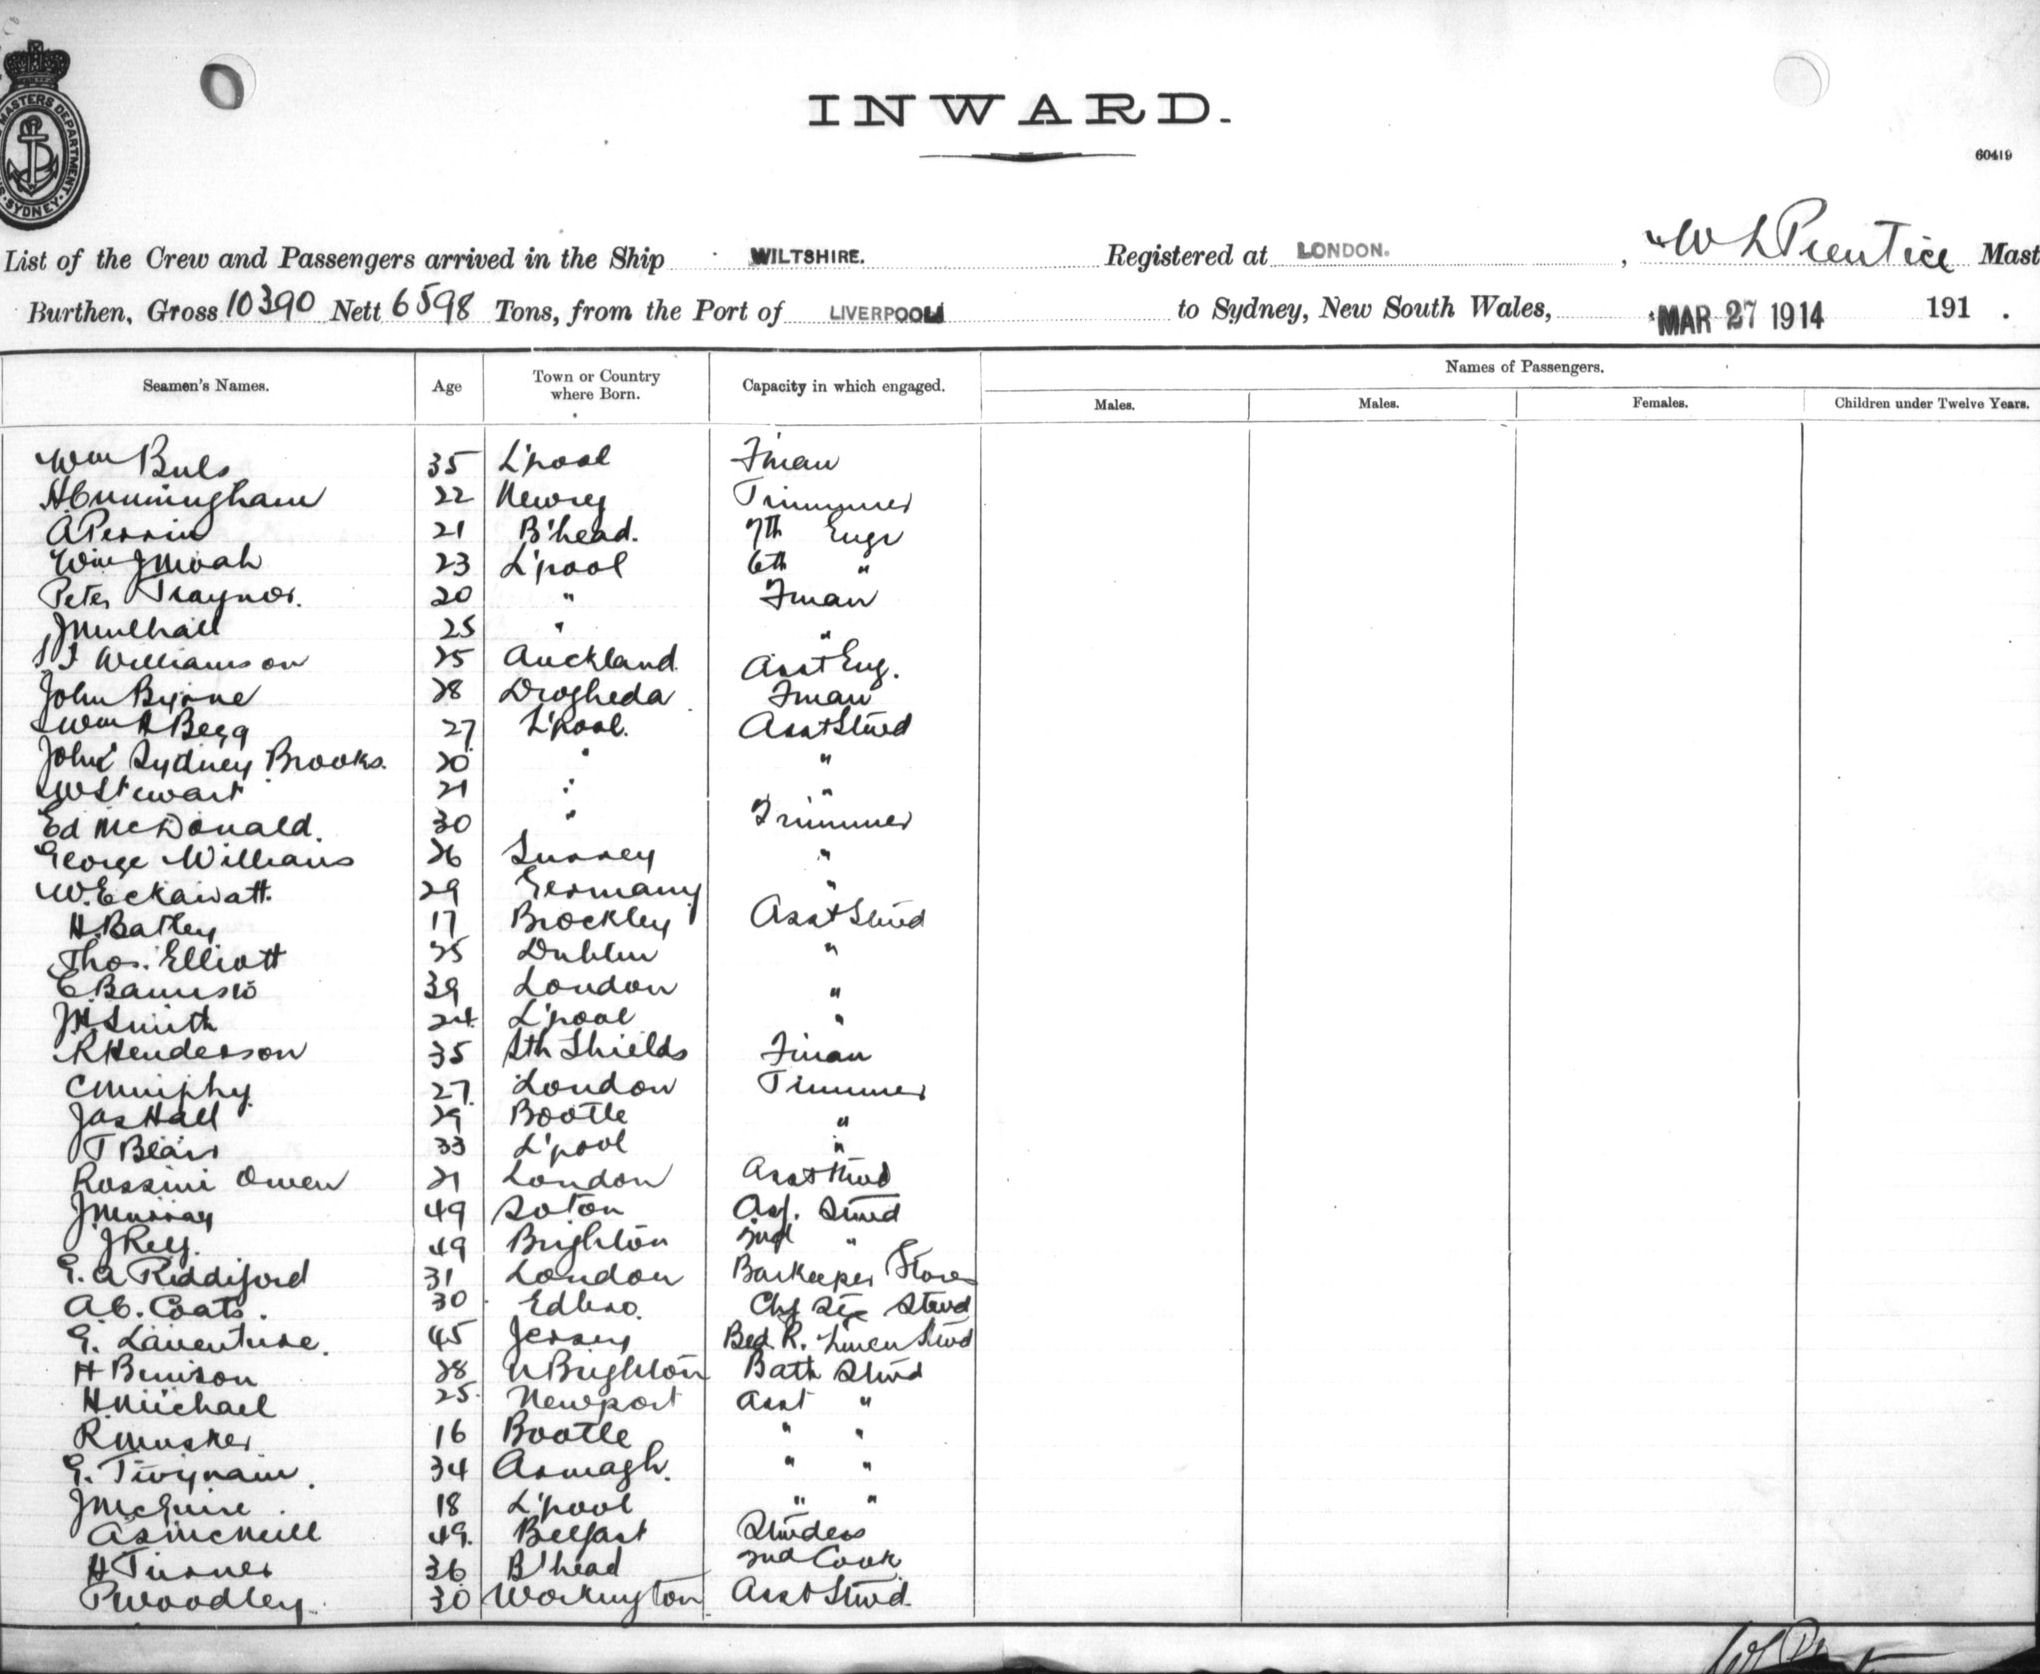 MASTERS DEPARTMENT. SYDNEY.
INWARD.
60419
List of the Crew and Passengers arrived in the Ship WILTSHIRE. Registered at LONDON. , W L Prentice Mast
Burthen, Gross 10390 Nett 6598 Tons, from the Port of LIVERPOOL to Sydney, New South Wales, MAR 27 1914 191 .
Seamen's Names. Age Town or Country where Born. Capacity in which engaged. Names of Passengers.
Males. Males. Females. Children under Twelve Years.
Wm Buls 35 L'pool Fman
H. Cunningham 22 Newry Trimmer
A Perrin 21 B'head. 7th Engr
Wm J Moah 23 L'pool 6th "
Peter Traynor. 20 " Fman
J Mulhall 25 " "
Williamson 25 Auckland Asst Eng.
John Byrne 28 Drogheda Fman
Wm H Begg 27 L'pool. Asst Stwd
John Sydney Brooks. 20 " "
W Stewart 21 " "
Ed McDonald. 30 " Trimmer
George Williams 26 Surrey "
W. Eckawatt. 29 Germany "
H. Batley 17 Brockley Asst Stwd
Thos. Elliott 35 Dublin "
E. 39 London "
J H Smith 24 L'pool "
R Henderson 35 Sth Shields Fman
C Murphy 27 London Trimmer
Jas Hall 29 Bootle "
T Blair 33 L'pool "
Rossini Owen 21 London Asst Stwd
J. Murray 49 Soton Stwd
J Rely. 49 Brighton 2nd "
E. A Riddiford 31 London Barkeeper Stores
A. C. Coats. 30 Edbro. Stwd
E. Laventure. 45 Jersey Bed R. Linen Stwd
H Benison 28 N Brighton Bath Stwd
H. Michael 25 Newport Asst "
R Musker 16 Bootle " "
E. Twynam. 34 Armagh. " "
J McGuire. 18 L'pool " "
A S McNeill 49 Belfast Stwdess
H Turner 36 B'head 2nd Cook
P Woodley 30 Workington Asst Stwd.